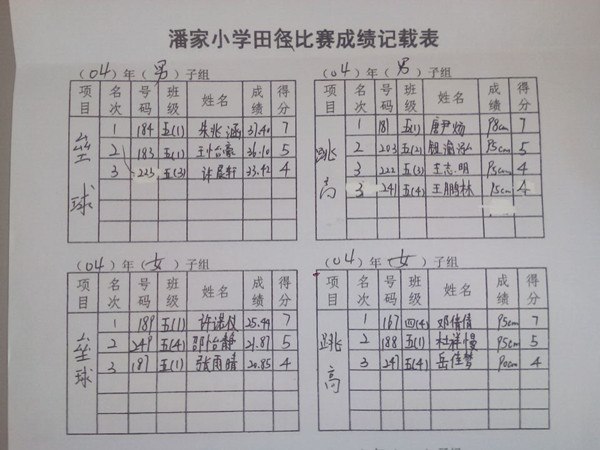 潘家小学田径比赛成绩记载表
(04)年(男)子组
项目 名次 号码 班级 姓名 成绩 得分
垒球
1 184 五(1) 朱兆涵 37.40 7
2 183 五(1) 王怡豪 36.10 5
3 223 五(3) 许晨轩 33.42 4
(04)年(男)子组
项目 名次 号码 班级 姓名 成绩 得分
跳高
1 181 五(1) 98cm 7
2 203 五(2) 95cm 5
3 222 五(3) 王志明 95cm 4
3 241 五(4) 王鹏林 95cm 4
(04)年(女)子组
项目 名次 号码 班级 姓名 成绩 得分
垒球
1 189 五(1) 许诺仪 25.44 7
2 249 五(4) 邵怡静 21.87 5
3 187 五(1) 张雨晴 20.85 4
(04)年(女)子组
项目 名次 号码 班级 姓名 成绩 得分
跳高
1 167 四(4) 邓倩倩 95cm 7
2 188 五(1) 杜祥慢 95cm 5
3 247 五(4) 岳佳梦 90cm 4